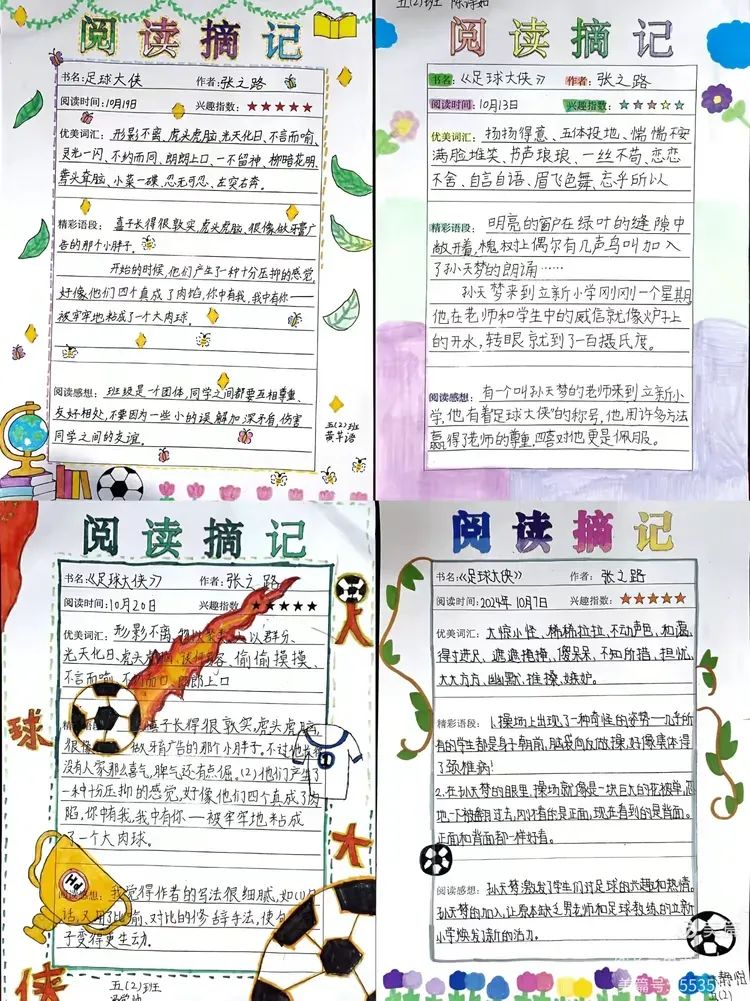 阅读摘记
书名:足球大侠 作者:张之路
阅读时间:10月19日 兴趣指数:★★★★★
优美词汇:形影不离、虎头虎脑、光天化日、不言而喻、
灵光一闪、不约而同、朗朗上口、一不留神、柳暗花明、
耷头耷脑、小菜一碟、忍无可忍、左突右奔。
精彩语段:喜子长得很敦实,虎头虎脑,很像做牙膏广
告的那个小胖子。
开始的时候,他们产生了一种十分压抑的感觉,
好像他们四个真成了肉馅,你中有我,我中有你——
被牢牢地粘成了一个大肉球。
阅读感想:班级是个团体,同学之间都要互相尊重、
友好相处,不要因为一些小的误解加深矛盾,伤害
同学之间的友谊。
五(2)班
五(2)班
阅读摘记
书名:《足球大侠》 作者:张之路
阅读时间:10月13日 兴趣指数:☆☆☆☆☆
优美词汇:扬扬得意、五体投地、惴惴不安
满脸堆笑、书声琅琅、一丝不苟、恋恋
不舍、自言自语、眉飞色舞、忘乎所以
精彩语段:明亮的窗户在绿叶的缝隙中
敞开着,槐树上偶尔有几声鸟叫加入
了孙天梦的朗诵……
孙天梦来到立新小学刚刚一个星期,
他在老师和学生中的威信就像炉子上
的开水,转眼就到了一百摄氏度。
阅读感想:有一个叫孙天梦的老师来到立新小
学,他有着足球大侠"的称号,他用许多方法
赢得了老师的尊重,四喜对他更是佩服。
阅读摘记
书名:《足球大侠》 作者:张之路
阅读时间:10月20日 兴趣指数:★★★★★
优美词汇:形影不离、以群分、
光天化日、虎头虎脑、偷偷摸摸、
不言而喻、朗上口
精彩语段:喜子长得很敦实,虎头虎脑,
很像做牙膏广告的那个小胖子。不过他长得
没有人家那么喜气,脾气还有点倔。(2)他们产生了
一种十分压抑的感觉,好像他们四个真成了肉
陷,你中有我,我中有你——被牢牢地粘成
了一个大肉球。
阅读感想:我觉得作者的写法很细腻,如(1)句
话,又用了比喻、对比的修辞手法,使句
子变得更生动。
五(2)班
足球大侠
阅读摘记
书名:《足球大侠》 作者:张之路
阅读时间:2024年10月7日 兴趣指数:★★★★★
优美词汇:大惊小怪、稀稀拉拉、不动声色、和蔼、
得寸进尺、遮遮掩掩、傻呆呆、不知所措、担忧、
大大方方、幽默、推搡、嫉妒。
精彩语段:1.操场上出现了一种奇怪的姿势—几乎所
有的学生都是身子朝前,脑袋向后做操,好像集体得
了颈椎病!
2.在孙天梦的眼里,操场就像是一块巨大的花被单,忽
地一下被翻过去,刚才看的是正面,现在看到的是背面。
正面和背面都一样好看。
阅读感想:孙天梦激发了学生们对足球的兴趣和热情。
孙天梦的加入,让原本缺乏男老师和足球教练的立新
小学焕发了新的活力。
美篇
美篇号:5535